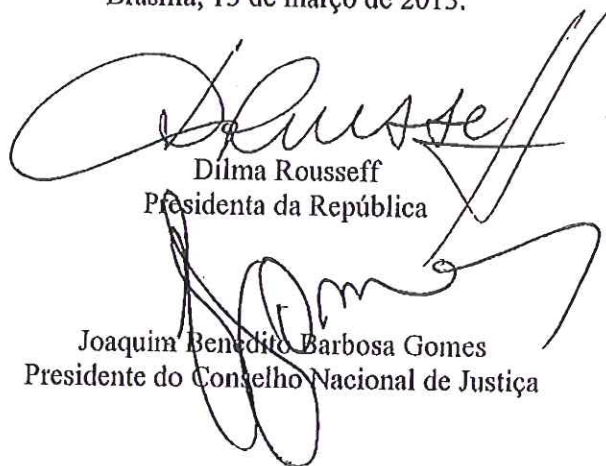 Brasília, 13 de março de 2013.
Dilma Rousseff
Presidenta da República
Joaquim Benedito Barbosa Gomes
Presidente do Conselho Nacional de Justiça